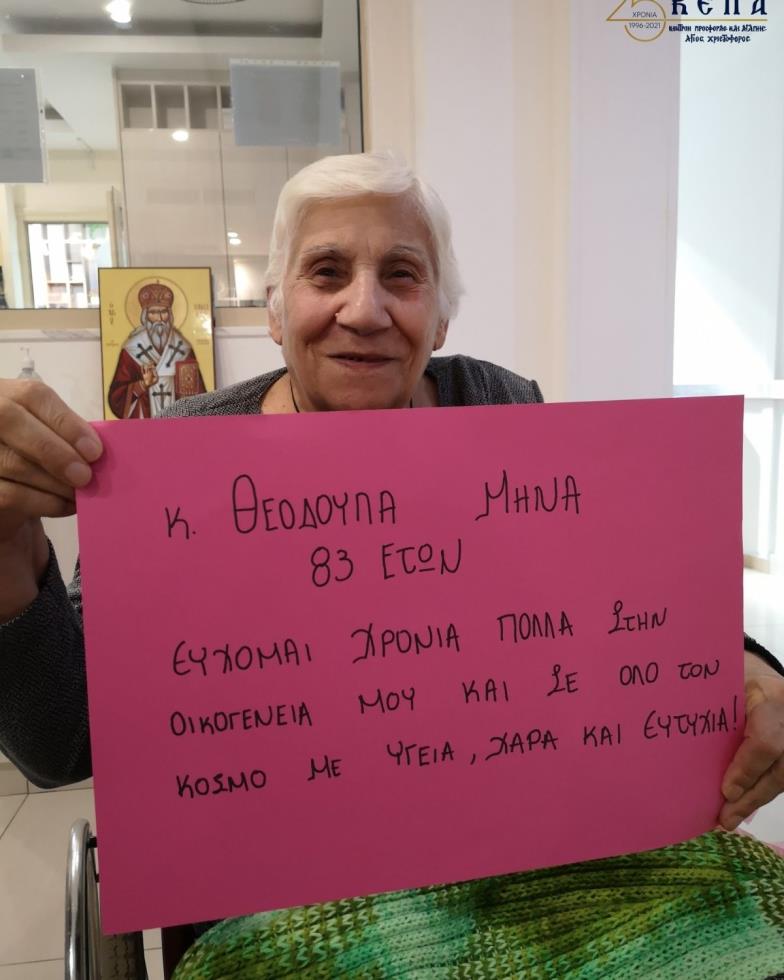 25
ΧΡΟΝΙΑ
1996-2021
ΚΕΠΑ
ΚΕΝΤΡΟΝ ΠΡΟΣΦΟΡΑΣ ΚΑΙ ΑΓΑΠΗΣ
ΑΓΙΟΣ ΧΡΙΣΤΟΦΟΡΟΣ
Κ. ΘΕΟΔΟΥΠΑ ΜΗΝΑ
83 ΕΤΩΝ
ΕΥΧΟΜΑΙ ΧΡΟΝΙΑ ΠΟΛΛΑ ΣΤΗΝ
ΟΙΚΟΓΕΝΕΙΑ ΜΟΥ ΚΑΙ ΣΕ ΟΛΟ ΤΟΝ
ΚΟΣΜΟ ΜΕ ΥΓΕΙΑ, ΧΑΡΑ ΚΑΙ ΕΥΤΥΧΙΑ!